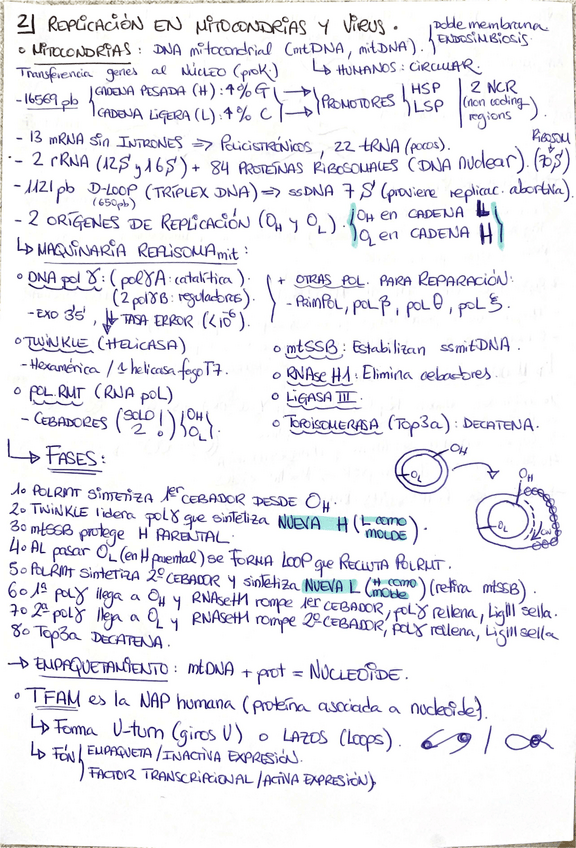 2) REPLICACIÓN EN MITOCONDRIAS Y VIRUS.
Doble membrana
ENDOSIMBIOSIS.
• MITOCONDRIAS: DNA mitocondrial (mtDNA, mitDNA).
Transferencia genes al NÚCLEO (proK)
↳ HUMANOS: CIRCULAR.
- 16569 pb
CADENA PESADA (H): ↑% G
CADENA LIGERA (L): ↑% C
PROMOTORES
HSP
LSP
2 NCR
(non coding
regions)
- 13 mRNA SIN INTRONES ⇒ POLICISTRÓNICOS, 22 tRNA (pocos).
- 2 rRNA (12S y 16S) + 84 PROTEÍNAS RIBOSOMALES (DNA nuclear).
RIBOSOM
(70S)
- 1121 pb D-LOOP (TRIPLEX DNA) ⇒ ssDNA 7S (proviene replicac. abortiva).
(650pb)
- 2 ORÍGENES DE REPLICACIÓN (OH y OL).
OH en CADENA L
OL en CADENA H
↳ MAQUINARIA REPLISOMA mit:
• DNA pol γ: (pol γA: catalítica).
(2 pol γB: reguladores).
- EXO 3'5', ↓ TASA ERROR (<10⁻⁶).
+ OTRAS POL. PARA REPARACIÓN:
- PrimPOL, pol β, pol θ, pol ξ.
• TWINKLE (HELICASA)
- Hexamérica / 1 helicasa fago T7.
• POL.RMT (RNA pol)
- CEBADORES (SOLO 2!)
OH
OL
• mtSSB: Estabilizan ssmitDNA.
• RNAse H1: Elimina cebadores.
• LIGASA III.
• TOPOISOMERASA (Top3a): DECATENA.
↳ FASES:
OH
OL
OH
OL
1º POLRMT SINTETIZA 1er CEBADOR DESDE OH.
2º TWINKLE lidera pol γ que sintetiza NUEVA H (L como MOLDE).
3º mtSSB protege H PARENTAL.
4º AL pasar OL (en H parental) se FORMA LOOP que RECLUTA POLRMT.
5º POLRMT sintetiza 2º CEBADOR y sintetiza NUEVA L (H como molde) (retira mtSSB).
6º 1ª pol γ llega a OH y RNAseH1 rompe 1er CEBADOR, pol γ rellena, LigIII sella.
7º 2ª pol γ llega a OL y RNAseH1 rompe 2º CEBADOR, pol γ rellena, LigIII sella
8º Top3a DECATENA.
→ EMPAQUETAMIENTO: mtDNA + prot = NUCLEOIDE.
• TFAM es la NAP humana (proteína asociada a nucleoide).
↳ Forma U-turn (giros U) o LAZOS (Loops).
↳ FÓN
EMPAQUETA / INACTIVA EXPRESIÓN.
FACTOR TRANSCRIPCIONAL / ACTIVA EXPRESIÓN